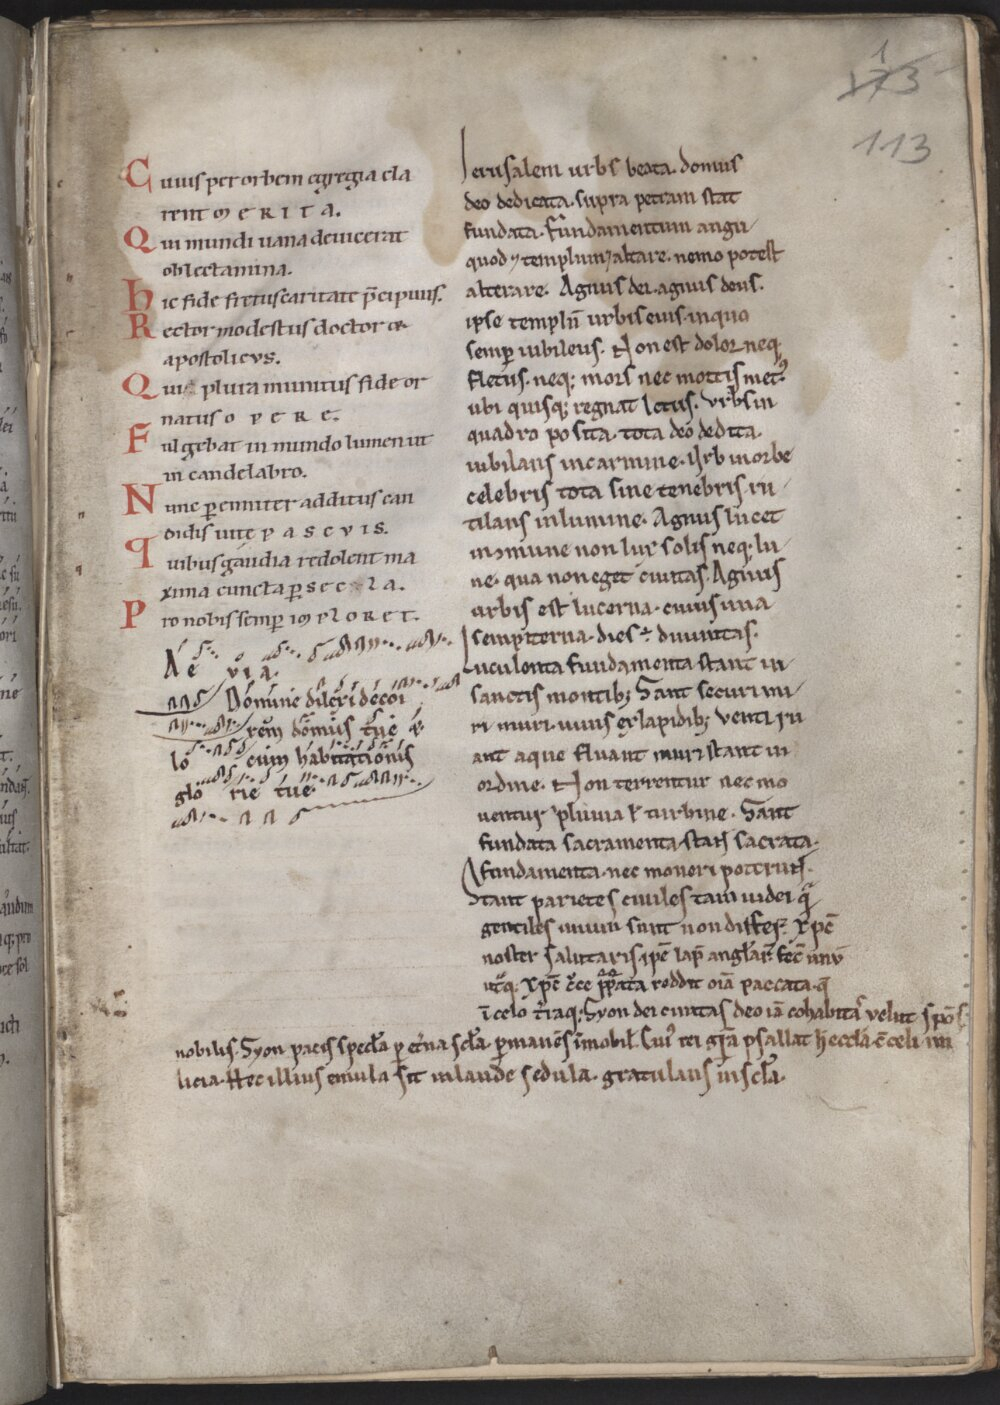 1
173
113
Cuius per orbem egregia cla
rent merita.
Qui mundi uana deuicerat
oblectamina.
hic fide fretus caritate p̄cipuus.
Rector modestus doctor &
apostolicus.
Quia pluia munitus fide or
natus opere.
Fulgebat in mundo lumen ut
in candelabro.
Nunc p̱enniter additus can
didis uite pascuis.
quibus gaudia redolent ma
xima cuncta p̱ secula.
Pro nobis semp̱ imploret.
Ae uia.
Domine dilexi decor
rem domus tue &
lo cum habitationis
glo rie tue
Ierusalem urbs beata. domus
deo dedicata. supra petram stat
fundata. Fundamentum angu
quod & templum & altare. nemo potest
alterare. Agnus dei. agnus deus.
ipse templū urbis eius. in quo
semp̱ iubileus. Non est dolor neq;
fletus. neq; mors nec mortis met᷒
ubi quisq; regnat letus. Vrbs in
quadro posita. tota deo dedita.
iubilans in carmine. Vrb in orbe
celebris tota sine tenebris. ru
tilans in lumine. Agnus lucet
non lux solis neq; lu
ne. qua non eget ciuitas. Agnus
urbis est lucerna. cuius una
sempiterna. dies ÷ diuinitas.
Luculenta fundamenta stant in
sanctis montib; Sant securi mu
ri muri uiuis ex lapidib; venti ru
ant aque fluant muri stant in
ordine. Non terrentur nec mo
uentur pluuia ł turbine. Sant
fundata sacramenta stant sacrata.
fundamenta. nec moueri poterunt.
Stant parietes ciuiles tam iudei q̄
gentiles unum sunt non differ̄. Xpc̄
noster salutaris ipē lap̄ anglar̄. fec̄ unū
utq; Xpc̄ reddit oīa paccata. q̄
ī celo t̄raq; Syon dei ciuitas deo iā cohabitās velut spōs
nobilis. Syon pacis specl̄a p̱ et̄na scl̄a. p̱manēs īmobil̄. Cui᷒ rei gr̄a psallat h̄ eccl̄a. ē celi mi
licia. Hec illius emula sit in laude sedula. gratulans in scl̄a.